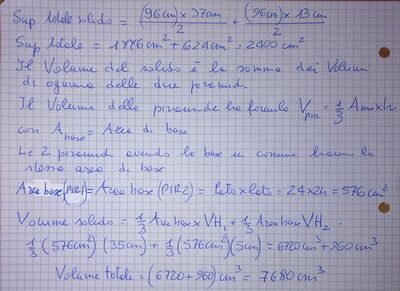 Sup totale solido = (96cm) x 37cm / 2 + (96cm) x 13cm / 2
Sup totale = 1776 cm² + 624 cm² = 2400 cm²
Il Volume del solido è la somma dei Volumi
di ognuna delle due piramidi.
Il Volume della piramide ha formula Vpir = 1/3 Abase x h
con Abase = Area di base
Le 2 piramidi avendo la base in comune hanno la
stessa area di base
Area base (PIR1) = Area base (PIR2) = lato x lato = 24 x 24 = 576 cm²
Volume solido = 1/3 Area base x VH1 + 1/3 Area base x VH2 =
1/3 (576cm²) (35cm) + 1/3 (576cm²) (5cm) = 6720cm³ + 960 cm³
Volume totale = (6720 + 960) cm³ = 7680 cm³